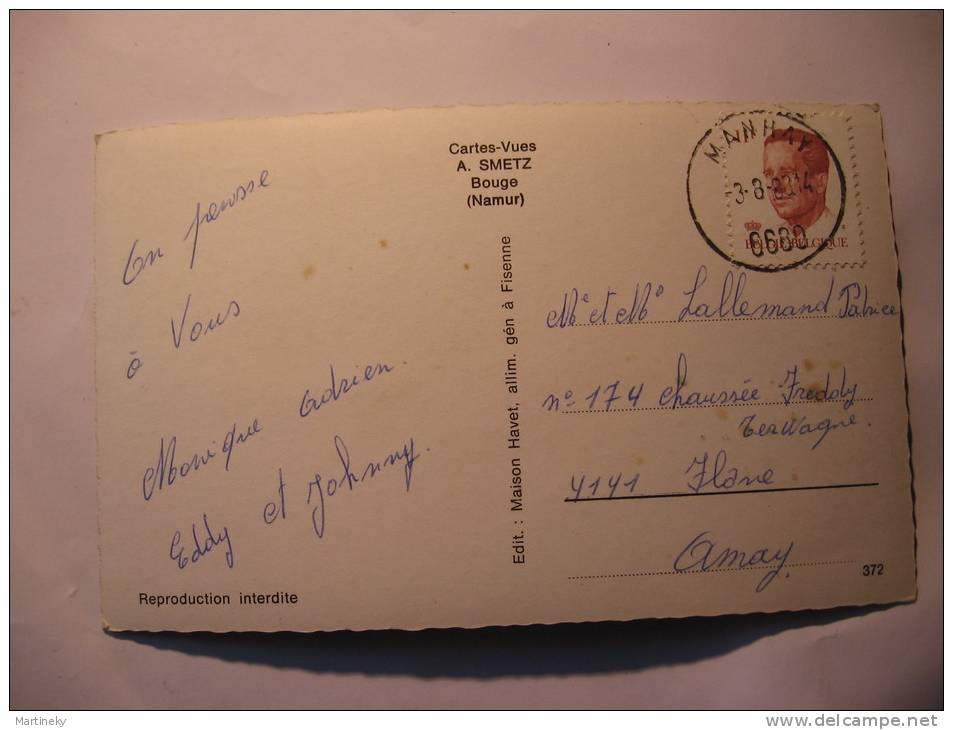 Cartes-Vues
A. SMETZ
Bouge
(Namur)
On pensse
à Vous
Monique Adrien.
Eddy et Johnny.
Reproduction interdite
Edit. : Maison Havet, allim. gén à Fisenne
MANHAY
-3-8- 14
6680
BELGIË-BELGIQUE
Me et Me Lallemand Patrice
no 174 chaussée Freddy
terwagne.
4141 Flône
Amay.
372
Martineky
www.delcampe.net